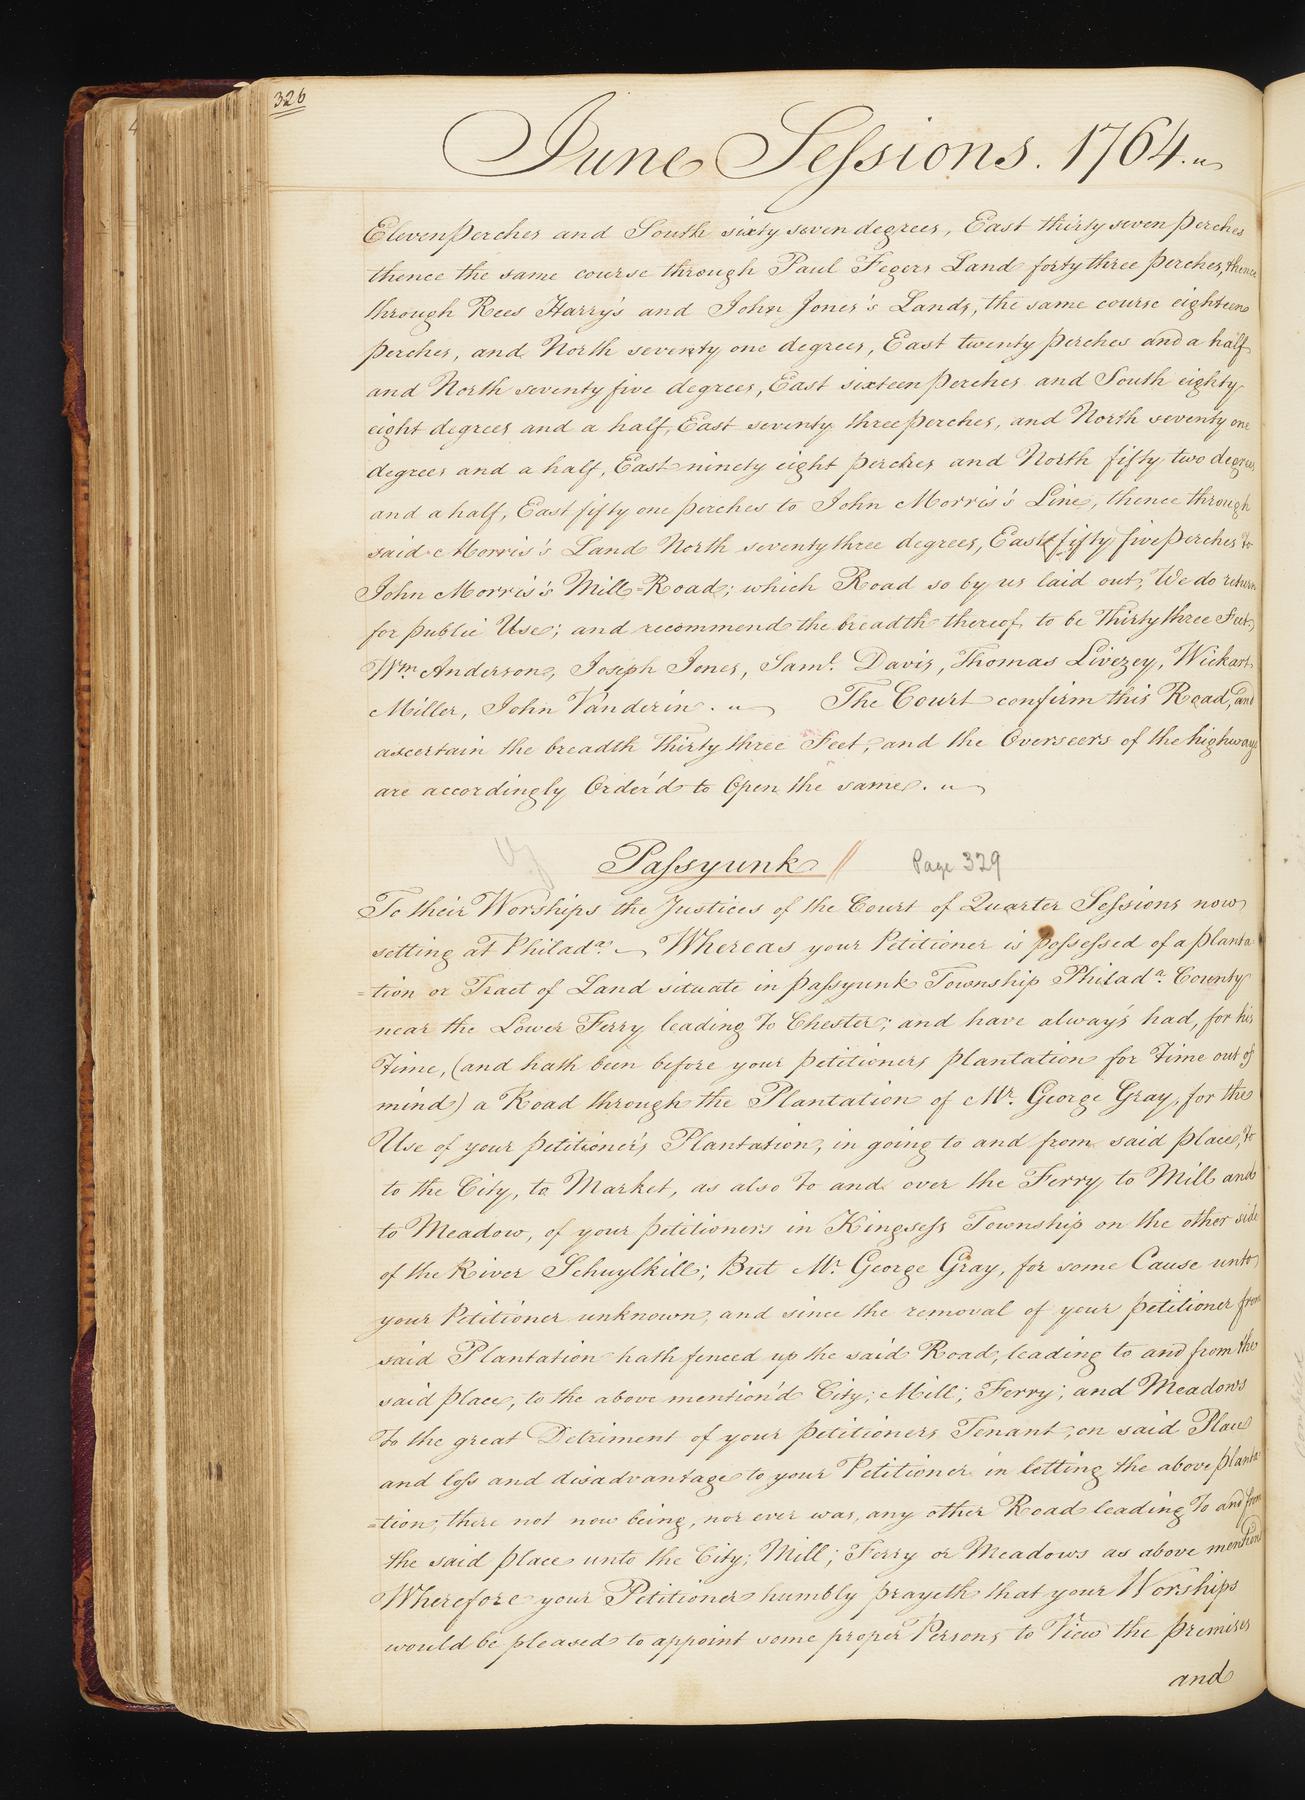 326
June Sessions. 1764.
Eleven Perches and South sixty seven degrees, East thirty seven perches
thence the same course through Paul Fegers Land forty three perches, thence
through Rees Harry's and John Jones's Lands, the same course eighteen
perches, and North seventy one degrees, East twenty perches and a half
and North seventy five degrees, East sixteen perches and South eighty
eight degrees and a half, East seventy three perches, and North seventy one
degrees and a half, East ninety eight perches and North fifty two degrees
and a half, East fifty one perches to John Morris's Line, thence through
said Morris's Land North seventy three degrees, East fifty five Perches to
John Morris's Mill-Road; which Road so by us laid out, We do return
for public Use; and recommend the breadth thereof to be Thirty three Feet.
Wm. Anderson, Joseph Jones, Saml. Davis, Thomas Livezey, Wickart
Miller, John Vanderin. The Court confirm this Road, and
ascertain the breadth thirty three Feet, and the Overseers of the highways
are accordingly Order'd to Open the same.
Passyunk // Page 329
To their Worships the Justices of the Court of Quarter Sessions now
setting at Philada. Whereas your Petitioner is possessed of a planta
=tion or Tract of Land situate in passyunk Township Philada. County
near the Lower Ferry leading to Chester; and have always had, for his
Time, (and hath been before your petitioners plantation for Time out of
mind) a Road through the Plantation of Mr. George Gray, for the
Use of your petitioner's Plantation, in going to and from said place, to
to the City, to Market, as also to and over the Ferry to Mill and
to Meadow, of your petitioners in Kingsess Township on the other side
of the River Schuylkill; But Mr. George Gray, for some Cause unto
your Petitioner unknown, and since the removal of your petitioner from
said Plantation hath fenced up the said Road, leading to and from the
said place, to the above mention'd City; Mill; Ferry; and Meadows
To the great Detriment of your petitioners Tenant, on said Place
and loss and disadvantage to your Petitioner in letting the above planta
=tion, there not now being, nor ever was, any other Road leading to and from
the said place unto the City; Mill; Ferry or Meadows as above mention'd
Wherefore your Petitioner humbly prayeth that your Worships
would be pleased to appoint some proper Persons to View the premises
and